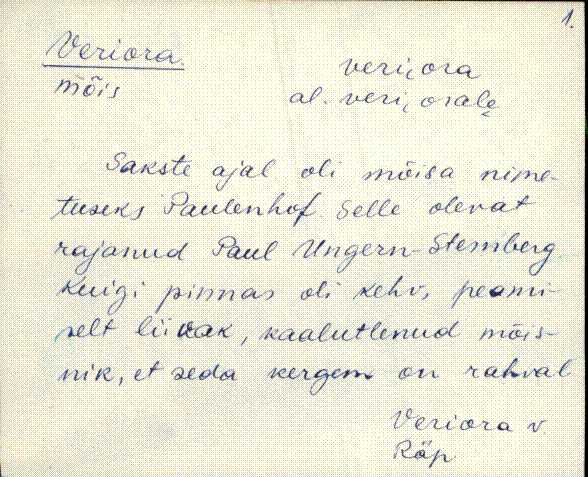 1.
Veriora.
mõis
veri,ora
al. veri,oralę
Sakste ajal oli mõisa nime-
tuseks Paulenhof. Selle olevat
rajanud Paul Ungern-Sternberg.
Kuigi pinnas oli kehv, peami-
selt liivak, kaalutlenud mõis-
nik, et seda kergem on rahval
Veriora v.
Räp.